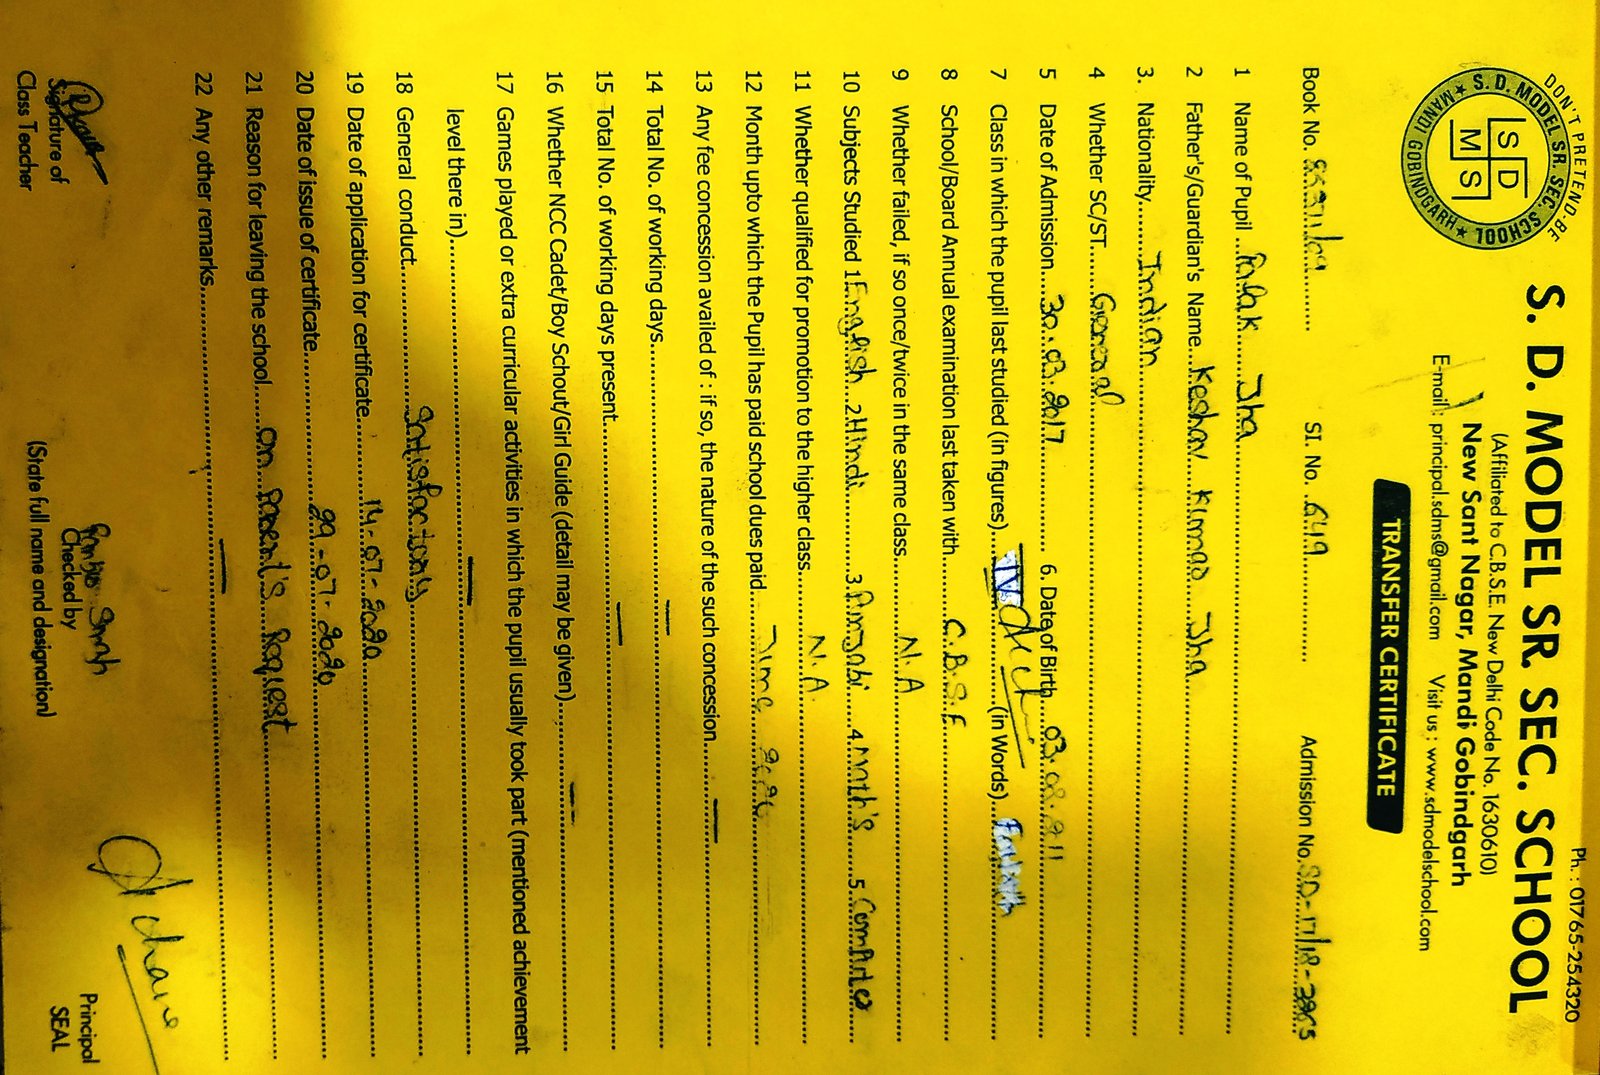 Ph. : 01765-254320
DON'T PRETEND-BE
S. D. MODEL SR. SEC. SCHOOL
MANDI GOBINDGARH
S D
M S
S. D. MODEL SR. SEC. SCHOOL
(Affiliated to C.B.S.E. New Delhi Code No. 1630610)
New Sant Nagar, Mandi Gobindgarh
E-mail : principal.sdms@gmail.com Visit us : www.sdmodelschool.com
TRANSFER CERTIFICATE
Book No. SI. No. 649 Admission No. SD-17/18-
1 Name of Pupil Palak Jha
2 Father's/Guardian's Name Keshav Kumar Jha
3. Nationality Indian
4 Whether SC/ST General
5 Date of Admission 30.03.2017 6. Date of Birth 03.08.
7 Class in which the pupil last studied (in figures) IV (in Words) Fourth
8 School/Board Annual examination last taken with C.B.S.E
9 Whether failed, if so once/twice in the same class. N.A
10 Subjects Studied 1 English 2 Hindi 3 Punjabi 4 Math's 5 Computer
11 Whether qualified for promotion to the higher class. N.A.
12 Month upto which the Pupil has paid school dues paid June 2020
13 Any fee concession availed of : if so, the nature of the such concession —
14 Total No. of working days —
15 Total No. of working days present —
16 Whether NCC Cadet/Boy Schout/Girl Guide (detail may be given) —
17 Games played or extra curricular activities in which the pupil usually took part (mentioned achievement
level there in) —
18 General conduct Satisfactory
19 Date of application for certificate 14-07-2020
20 Date of issue of certificate 29-07-2020
21 Reason for leaving the school. on Parent's Request
22 Any other remarks —
Signature of
Class Teacher
Checked by
(State full name and designation)
Principal
SEAL